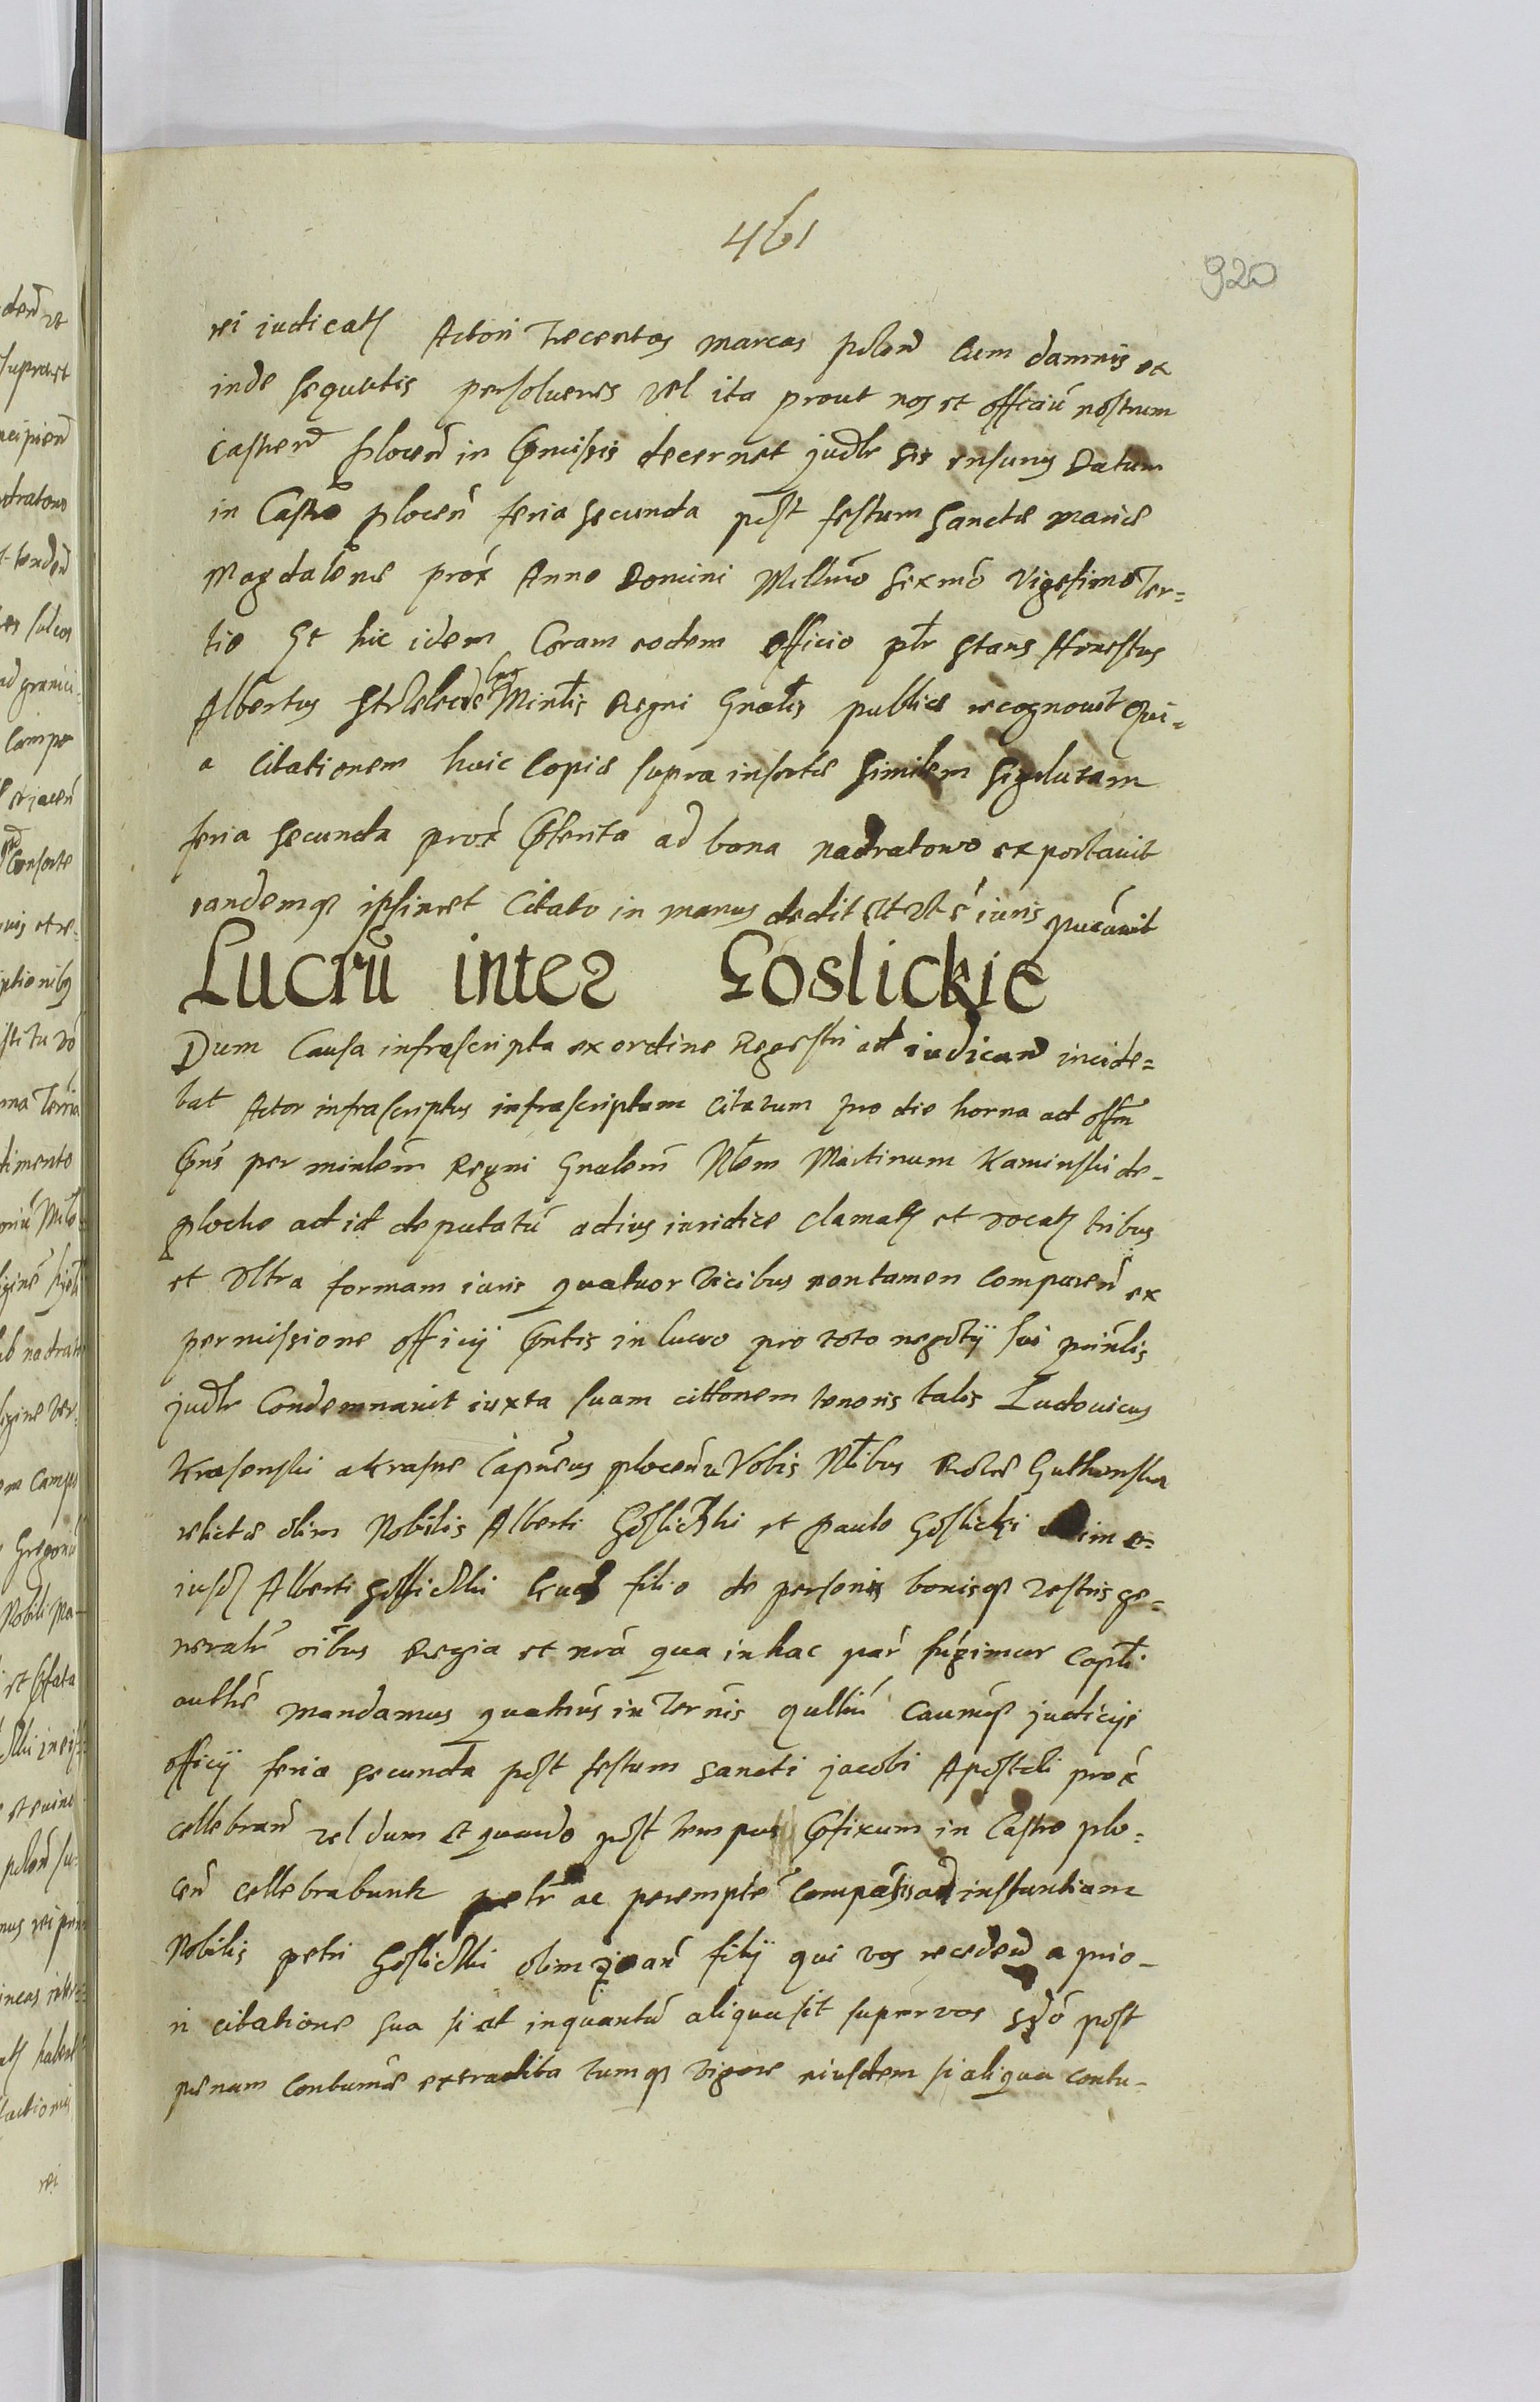 461
920
rei iudicatę Actori Trecentas marcas polon̄ Cum damnis ex
inde sequutis persolueris vel ita prout nos et officiū nostrum
Castren̄ plocen̄ in p̄missis decernet judłr sis ensurus Datum
in Castro plocen̄ feria secunda post festum Sanctæ mariæ
Magdalenæ prox̄ Anno Domini Millimo sexmo Vigesimo Ter=
tio Et hic idem Coram eodem Officio płr stans Honestus
Albertus Minłis Regni Gnałis publice recognouit Qui=
a Citationem huic Copiæ supra insertæ Similem Sigilutam
feria secunda prox̄ p̄terita ad bona nadratowo exportauit
eandemq̢ ipsimet Citato in manus dedit et iuris
Lucrū inter Goslickie
Dum Causa infrascripta ex ordine Regestri ad iudican̄ incide=
bat Actor infrascriptus infrascriptam citatum pro die horna ad offm̄
p̄ns per minłem Regni Gnalem Młem Martinum Kaminski de-
plocko ad id deputatū adius iuridice clamatę et vocatę tribus
et vltra formam iuris quatuor vicibus non tamen Comparen̄ ex
permissione officij p̄ntis in lucro pro toto negotij sui prin̄lis
judłr Condemnauit iuxta suam cittonem tenoris talis Ludouicus
Krasinski a Krasne Capn̄eus plocen̄ Vobis Nłibus
relictæ olim Nobilis Alberti Goslickki et Paulo Goslicki olim e=
iusdę Alberti Goslickki filio de personis bonisq̢ vestris ge=
neralr̄ oībus Regia et nrā qua in hac par̄ fūgimur Capłi
authe mandamus quatn̄s in Ternis judicijs
officij feria secunda post festum Sancti jacobi Apostoli prox̄
cellebran̄ vel dum et quando post tempus p̄fixum in Castro plo=
cen̄ cellebrabunt petr̄ ac peremptē compatis ad instantiam
Nobilis petri Goslickki olim filij qui vos receden̄ a prio-
ri citatione sua si et inquantū aliqua sit super vos post
penam contumae extradita tumq̢ vigore eiusdem si aliqua contu-